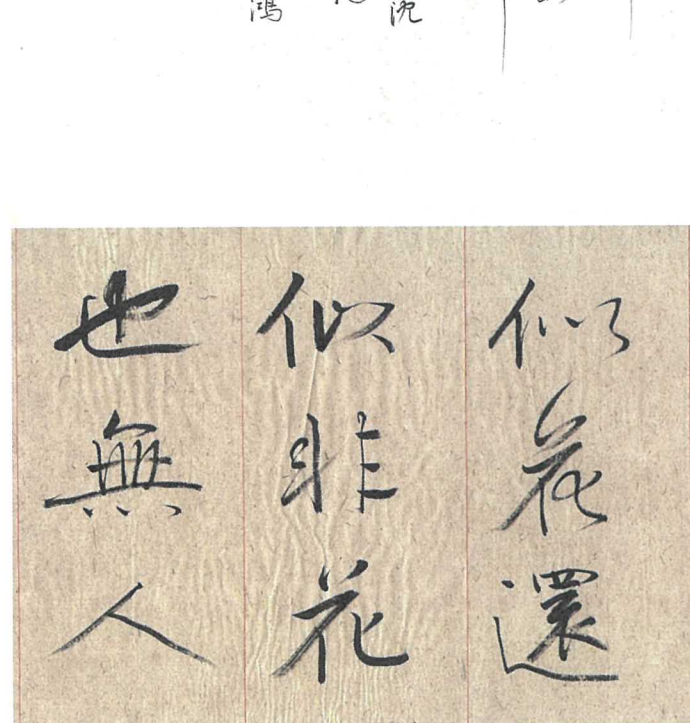 鴻
沈
似花還
似非花
也無人